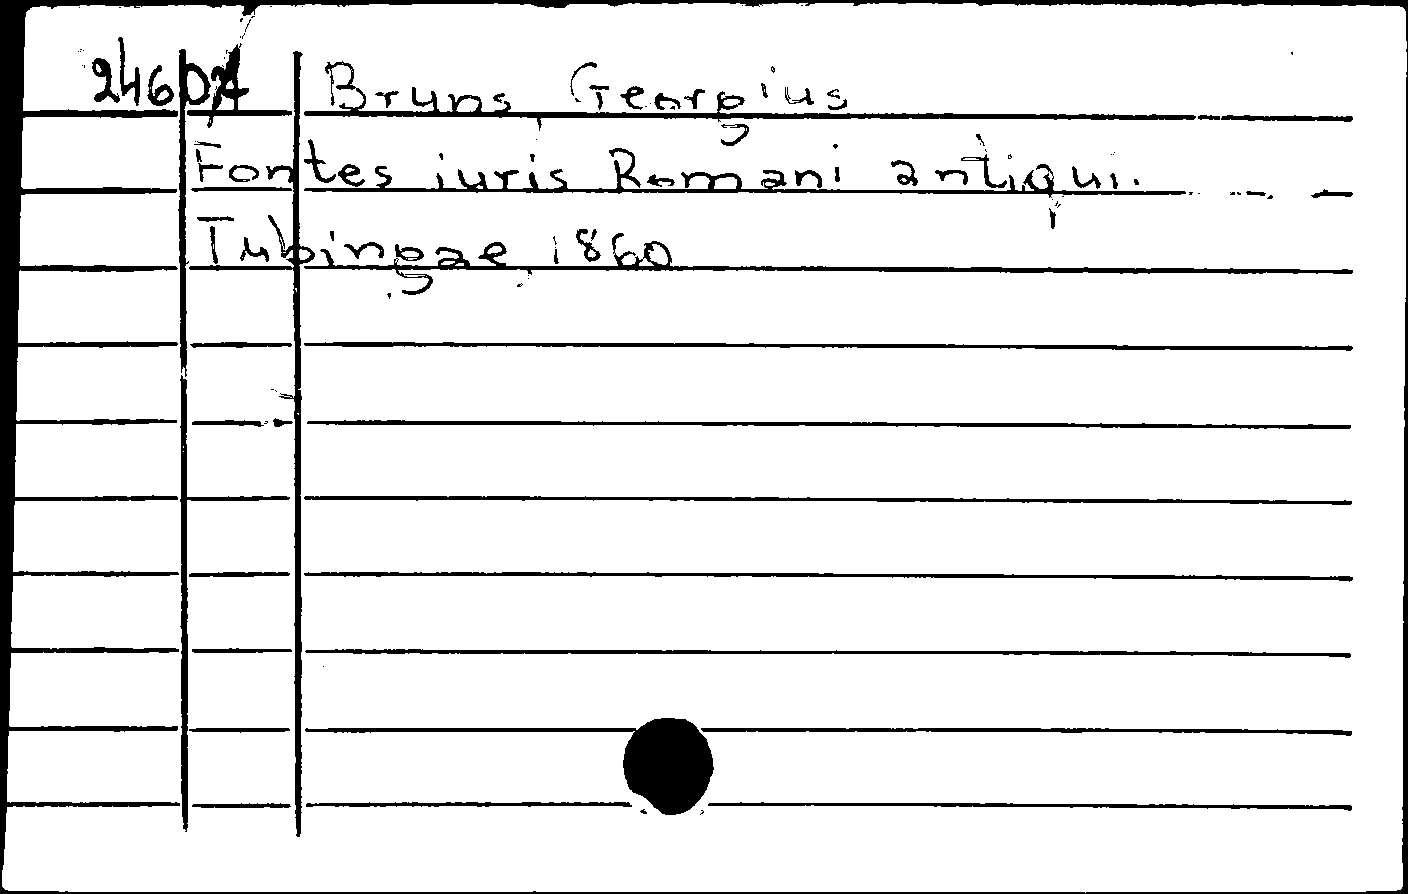 24607 Bruns, Georgius
Fontes iuris Romani antiqui.
Tubingae, 1860